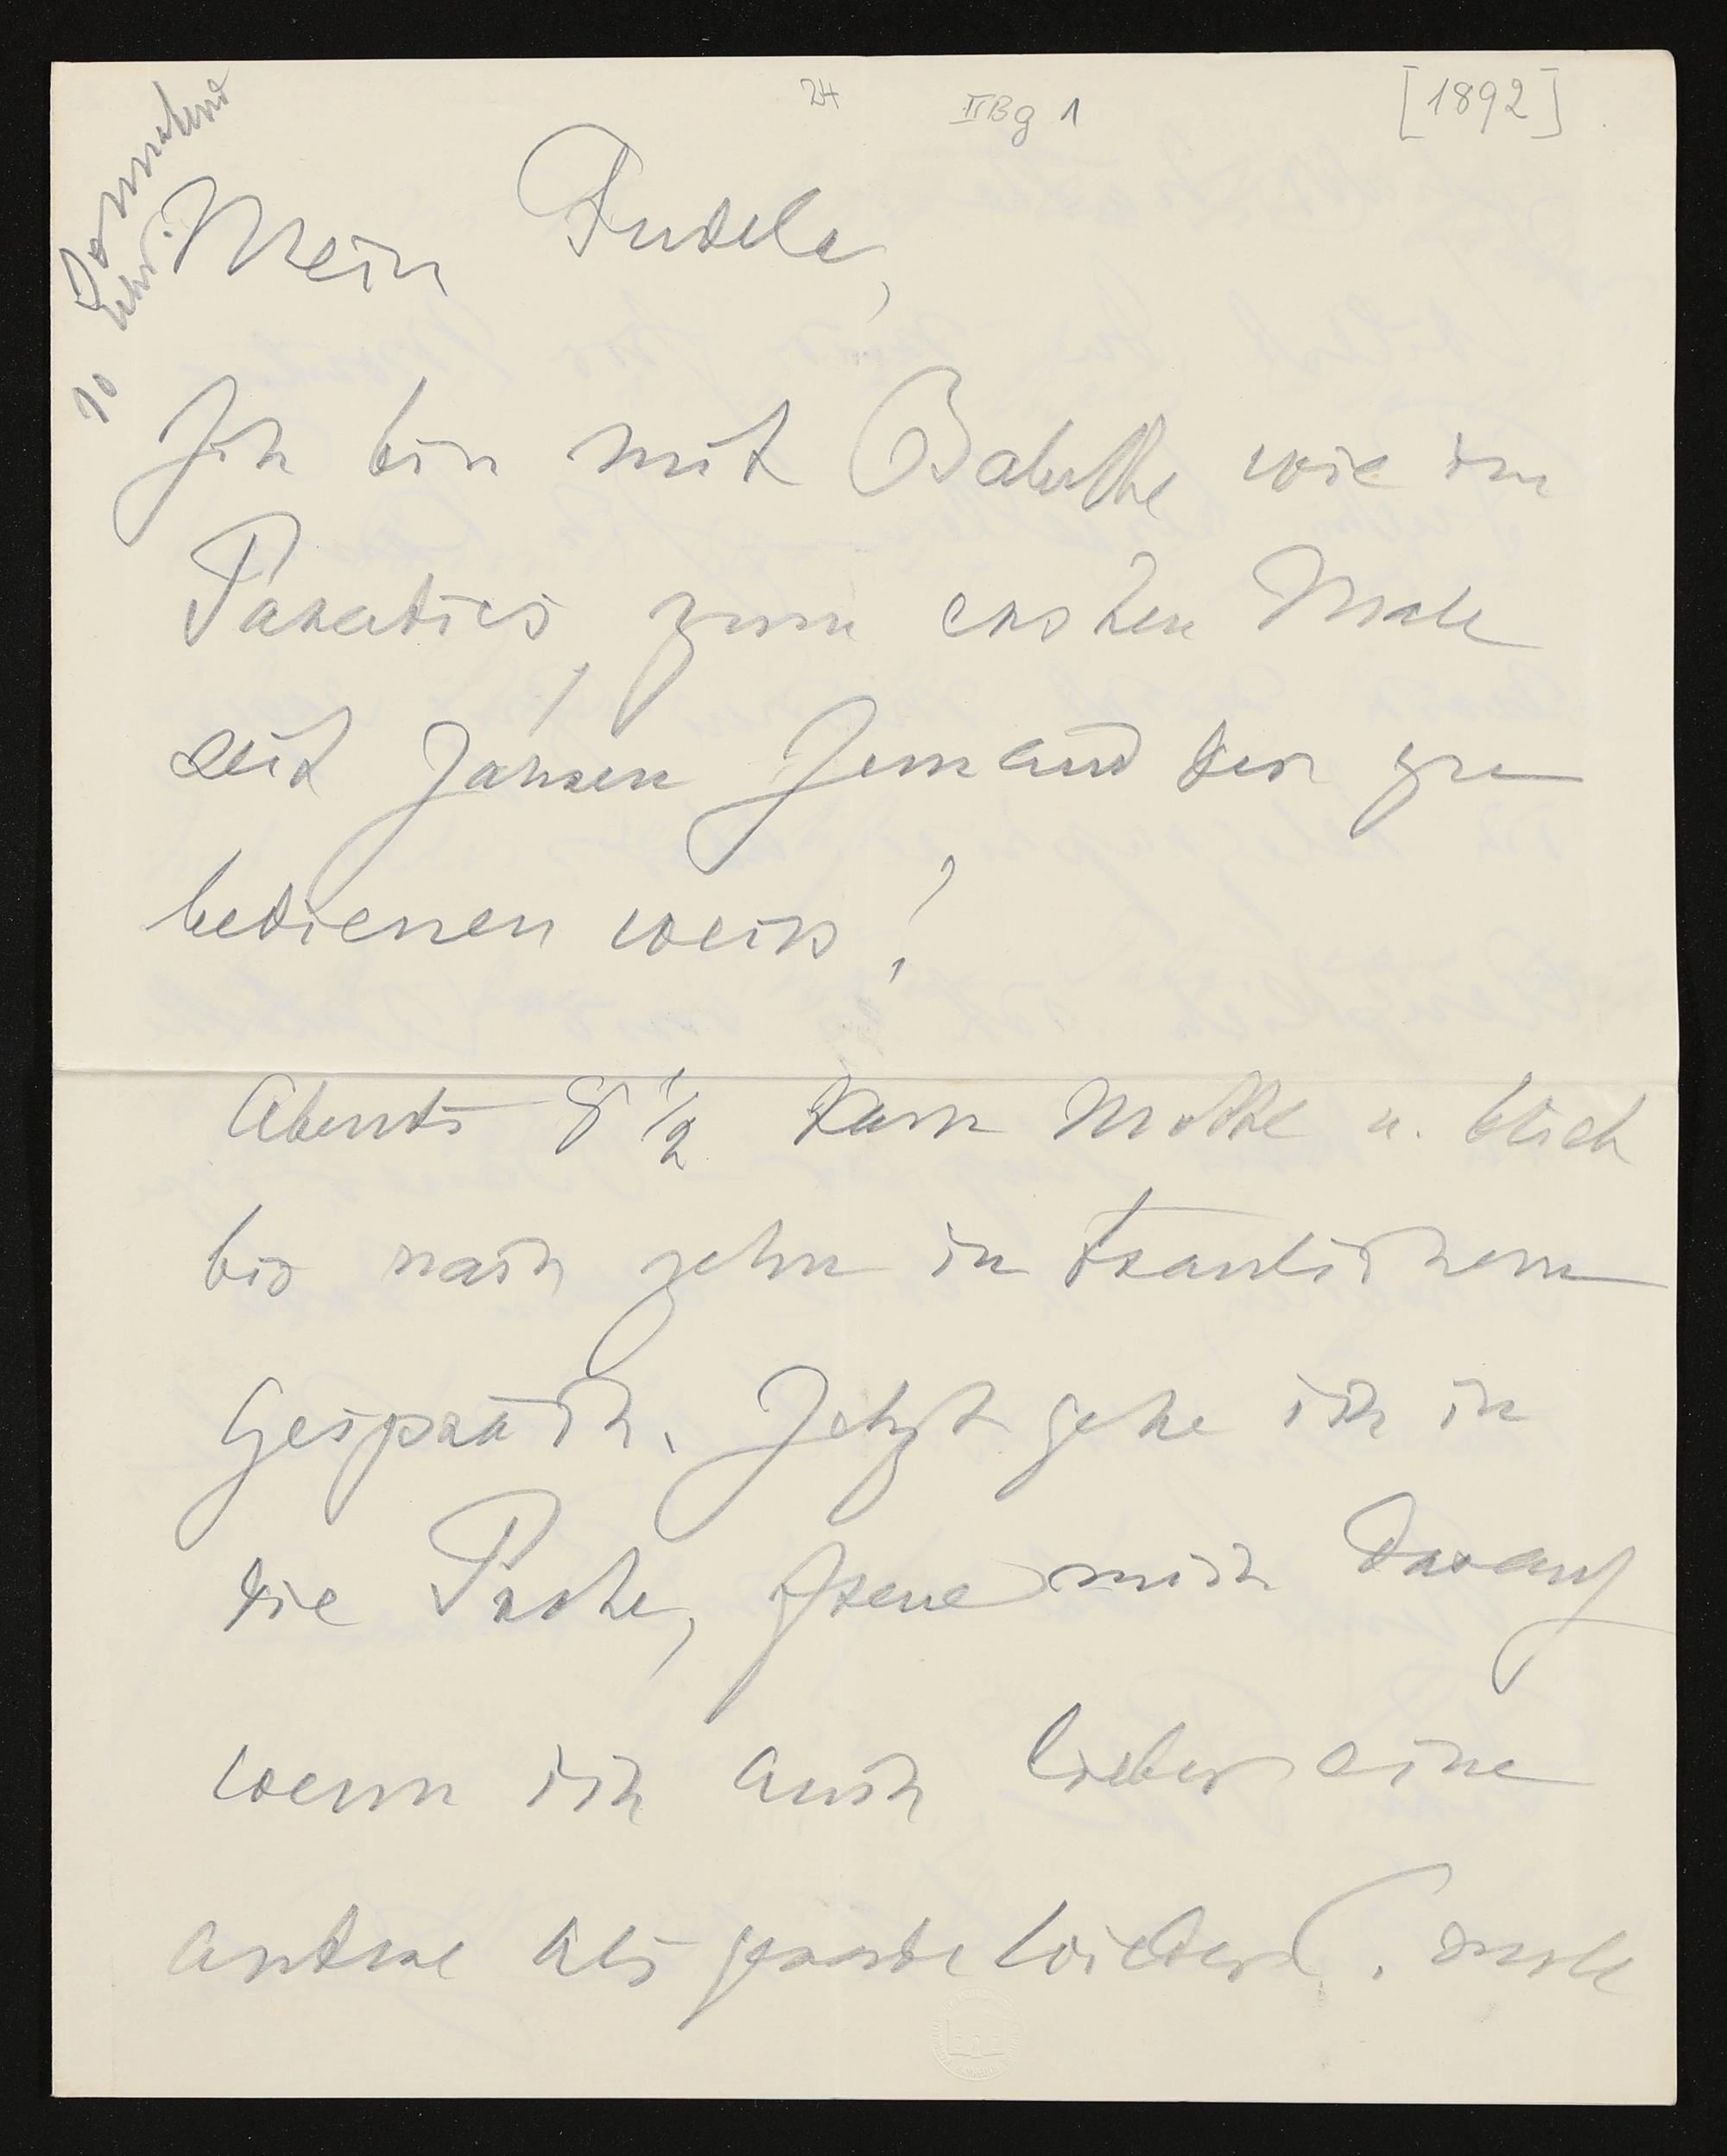 24 II Bg 1 [1892]
Sonnabend
10 Uhr.
Mein Dudele,
Ich bin mit Babette wie im
Paradies, zum ersten Male
seit Jahren Jemand der zu
bedienen weiss!
Abends 8 1/2 kam Motke u. blieb
bis nach zehn in traulichem
Gespräch. Jetzt gehe ich in
die Probe, freue mich darauf
wenn ich auch lieber eine
andere als gerade